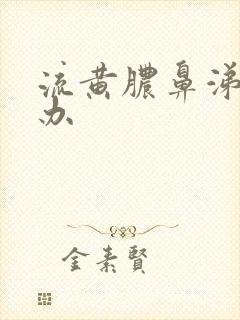 流黄膿鼻涕
办
金素賢